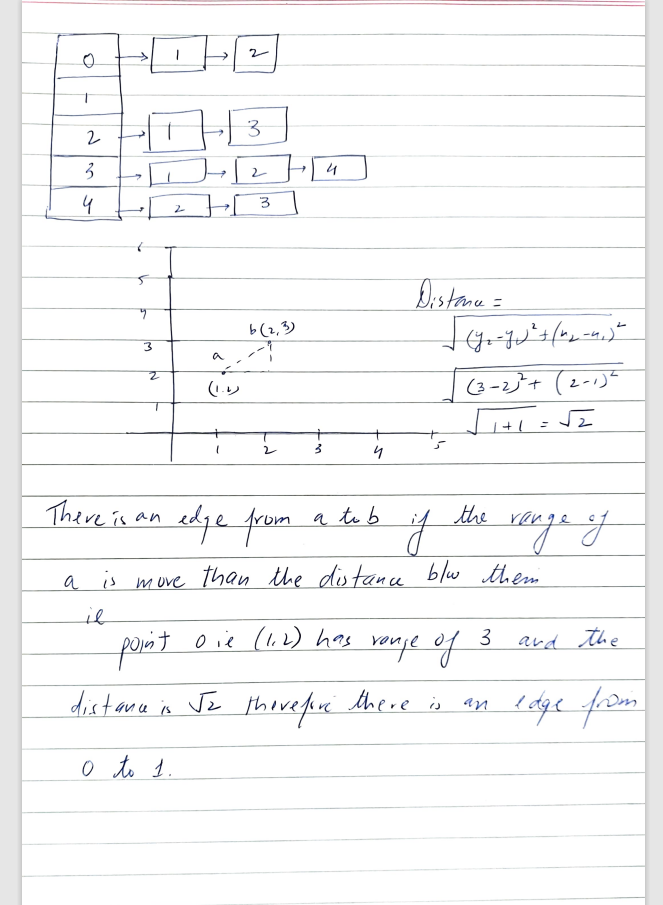 0 → 1 → 2
1
2 → 1 → 3
3 → 1 → 2 → 4
4 → 2 → 3
6
5
4
3
2
1
b (2,3)
a
(1,2)
1 2 3 4 5
Distance =
√(y₂-y₁)²+(x₂-x₁)²
√(3-2)²+(2-1)²
√1+1 = √2
There is an edge from a to b if the range of
a is more than the distance b/w them
ie
point 0 ie (1,2) has range of 3 and the
distance is √2 therefore there is an edge from
0 to 1.